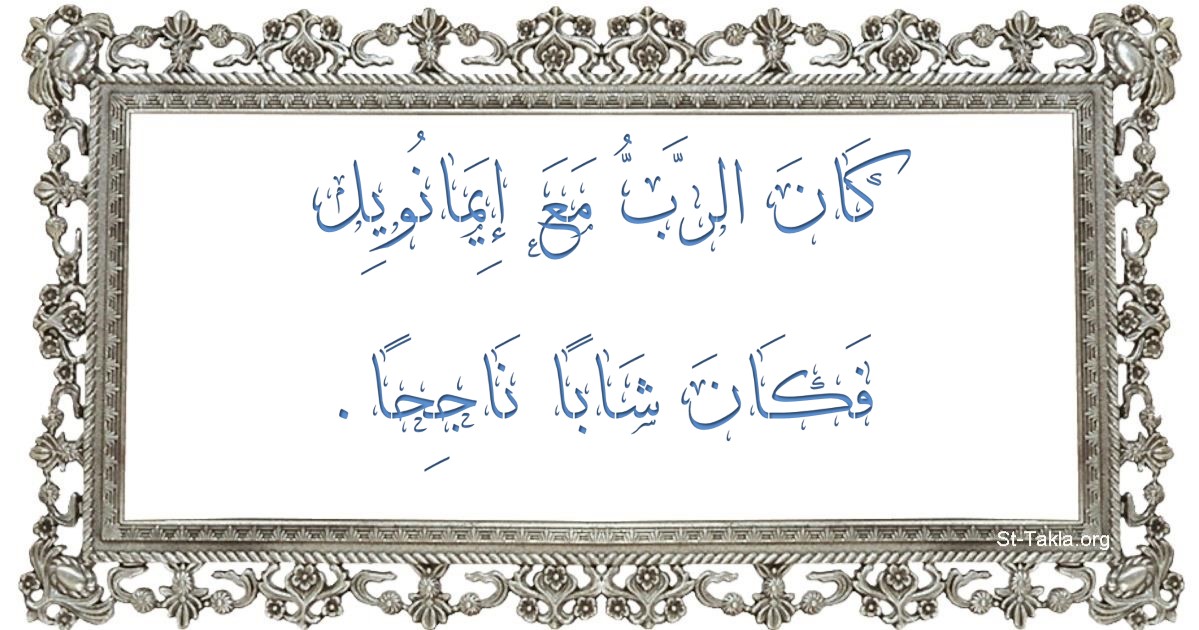 كَانَ الرَّبُّ مَعَ إِيَمَانُويِل
فَكَانَ شَابًا نَاجِحًا .
St-Takla.org